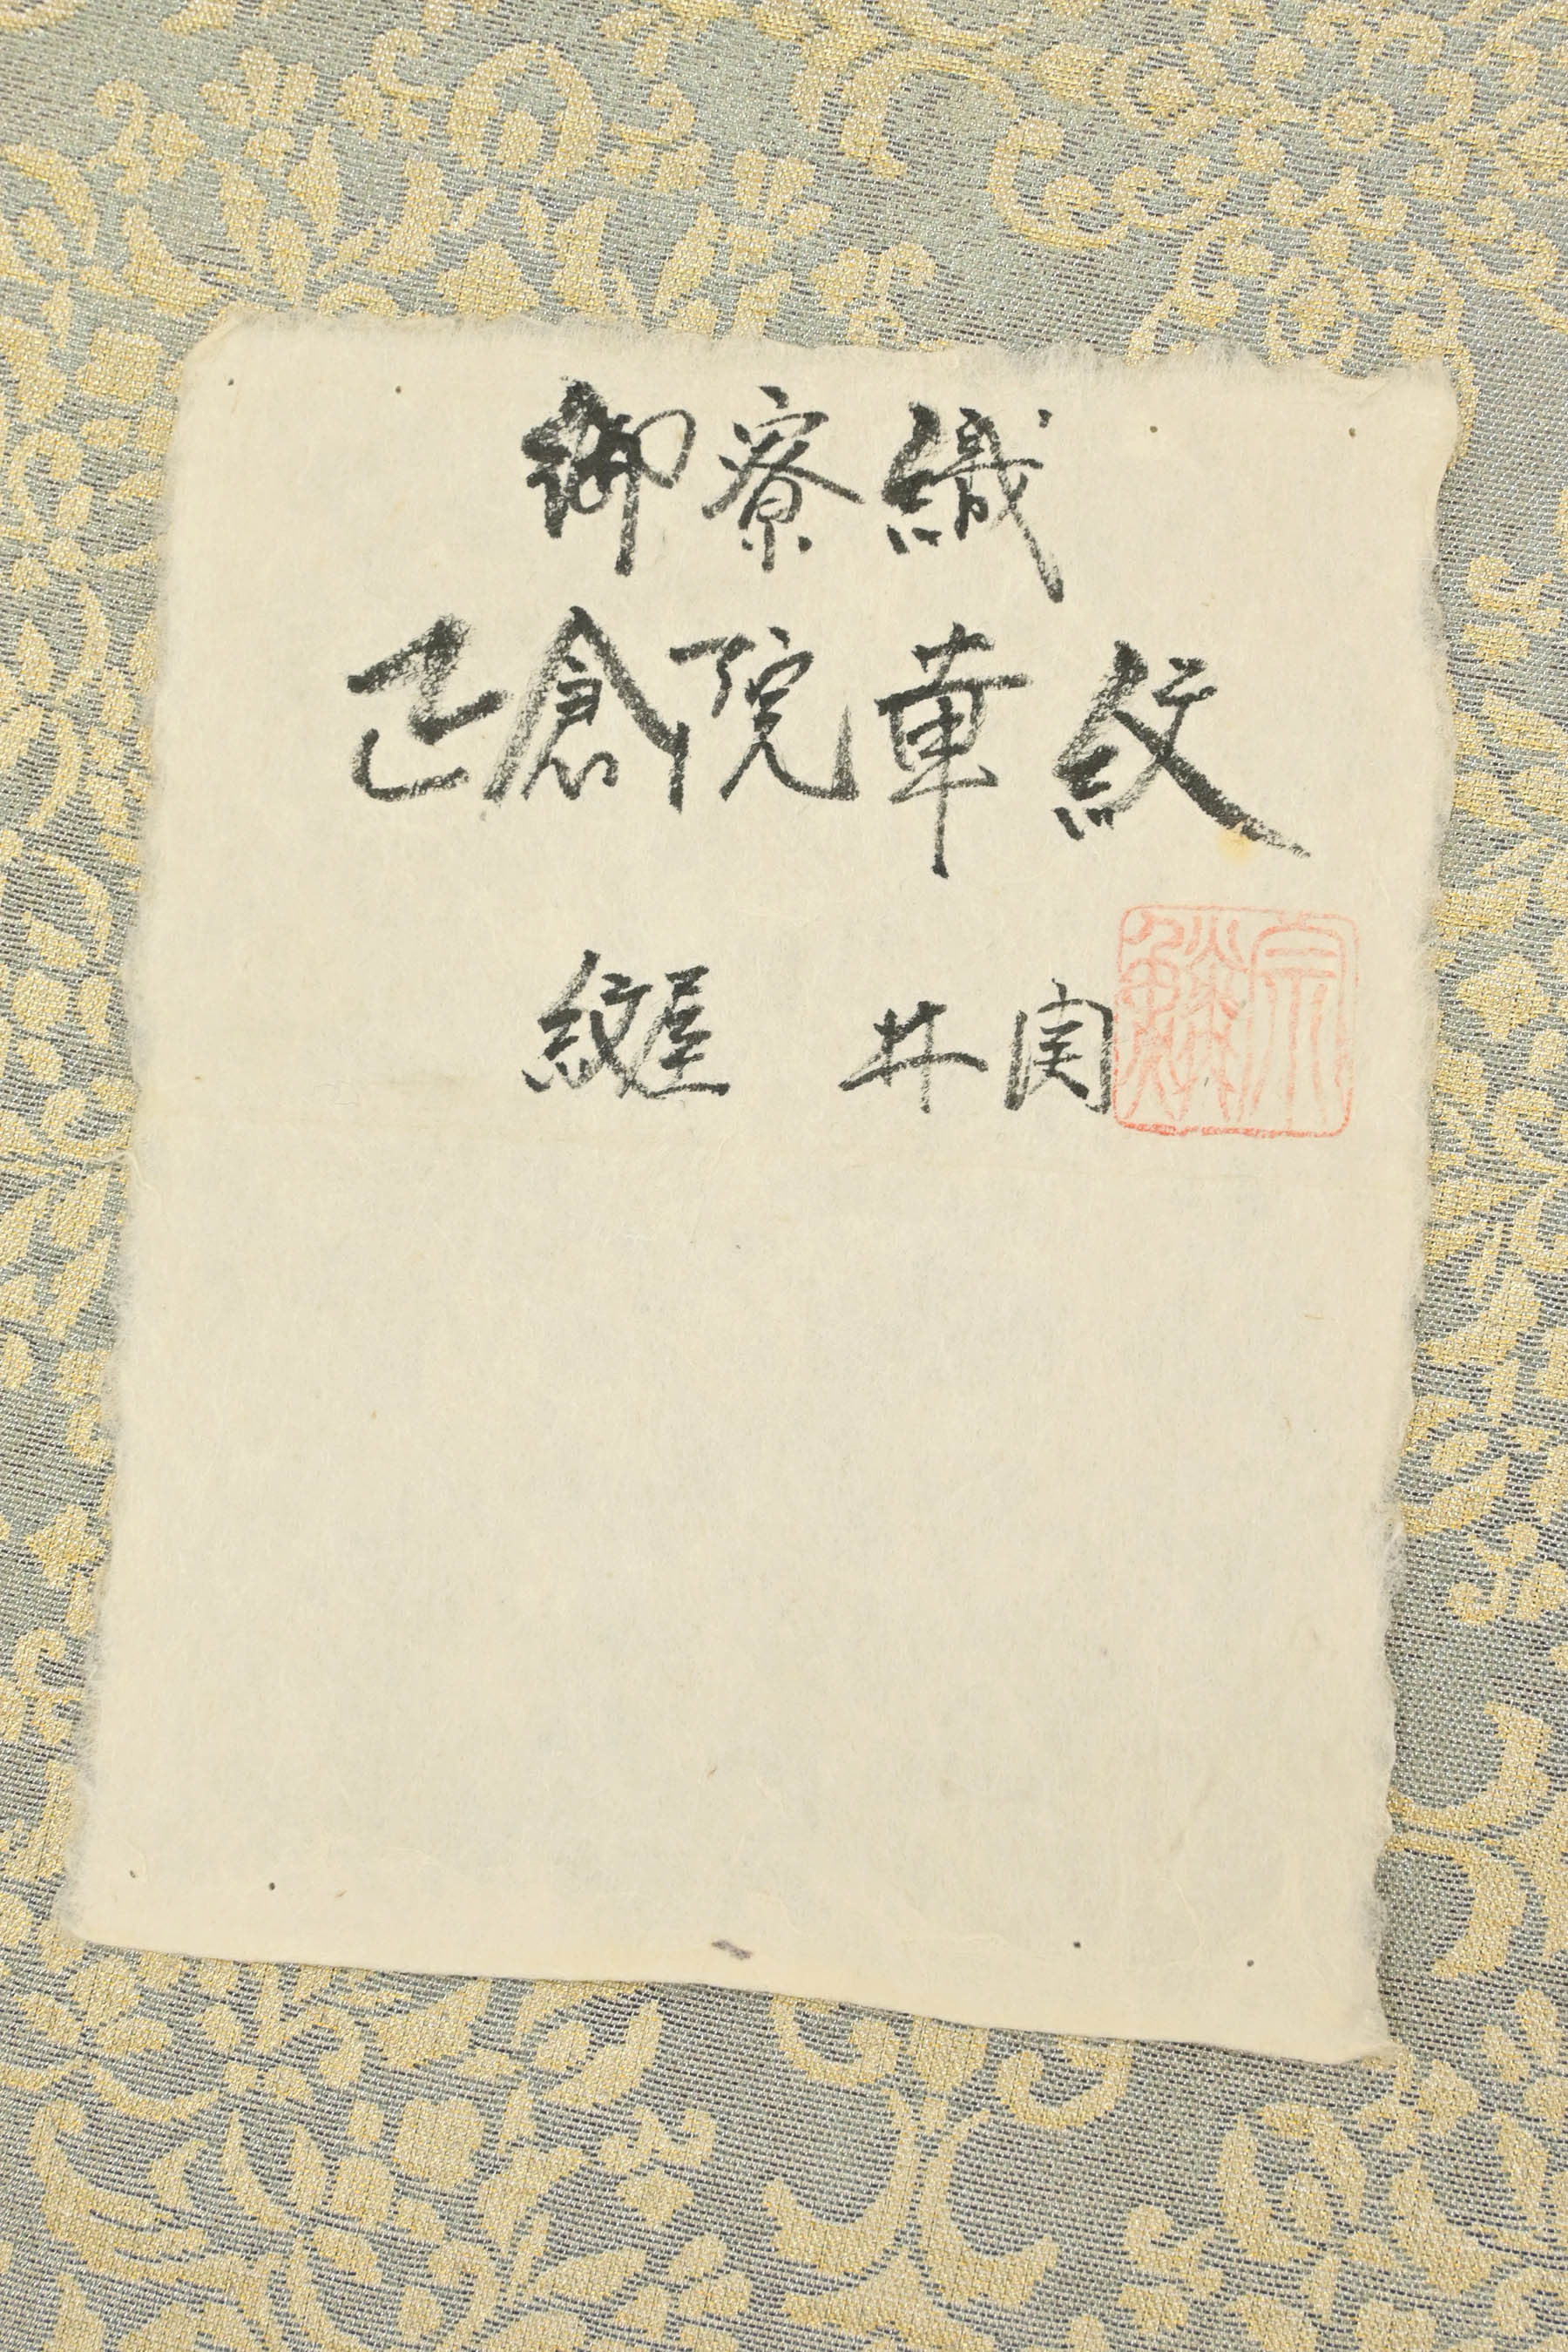 御寮織
正倉院華紋
紋屋 井関